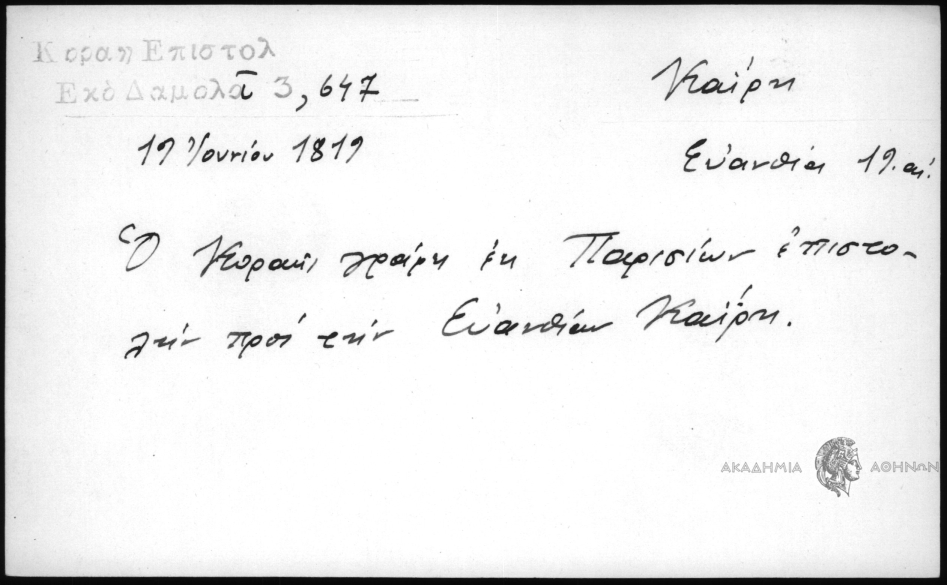 Κοραη Επιστολ
Εκδ Δαμαλα τ 3, 647
Καΐρη
19 Ἰουνίου 1819
Εὐανθία 19. αἰ.
Ὁ Κοραῆς γράφη ἐκ Παρισίων ἐπιστο-
λήν πρός τήν Εὐανθίαν Καΐρη.
ΑΚΑΔΗΜΙΑ ΑΘΗΝΩΝ